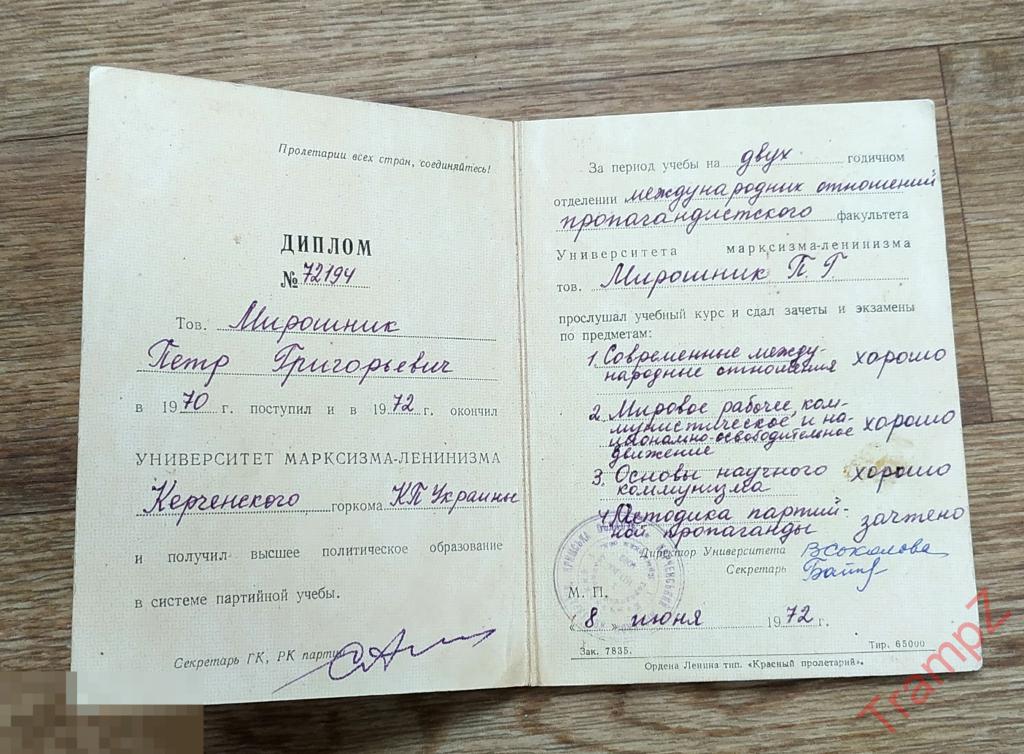 Пролетарии всех стран, соединяйтесь!
ДИПЛОМ
№ 72194
Тов. Мирошник
Петр Григорьевич
в 1970 г. поступил и в 1972 г. окончил
УНИВЕРСИТЕТ МАРКСИЗМА-ЛЕНИНИЗМА
Керченского горкома КП Украины
и получил высшее политическое образование
в системе партийной учебы.
Секретарь ГК, РК партии
За период учебы на двух годичном
отделении международных отношений
пропагандистского факультета
Университета марксизма-ленинизма
тов. Мирошник П. Г.
прослушал учебный курс и сдал зачеты и экзамены
по предметам:
1. Современные между-
народные отношения хорошо
2. Мировое рабочее, ком-
мунистическое и на-
ционально-освободительное
движение хорошо
3. Основы научного
коммунизма хорошо
4. Методика партий-
ной пропаганды зачтено
Директор Университета ВСоколова
Секретарь
М. П.
« 8 » июня 1972 г.
Зак. 7835. Тир. 65000
Ордена Ленина тип. «Красный пролетарий».
TrampZ